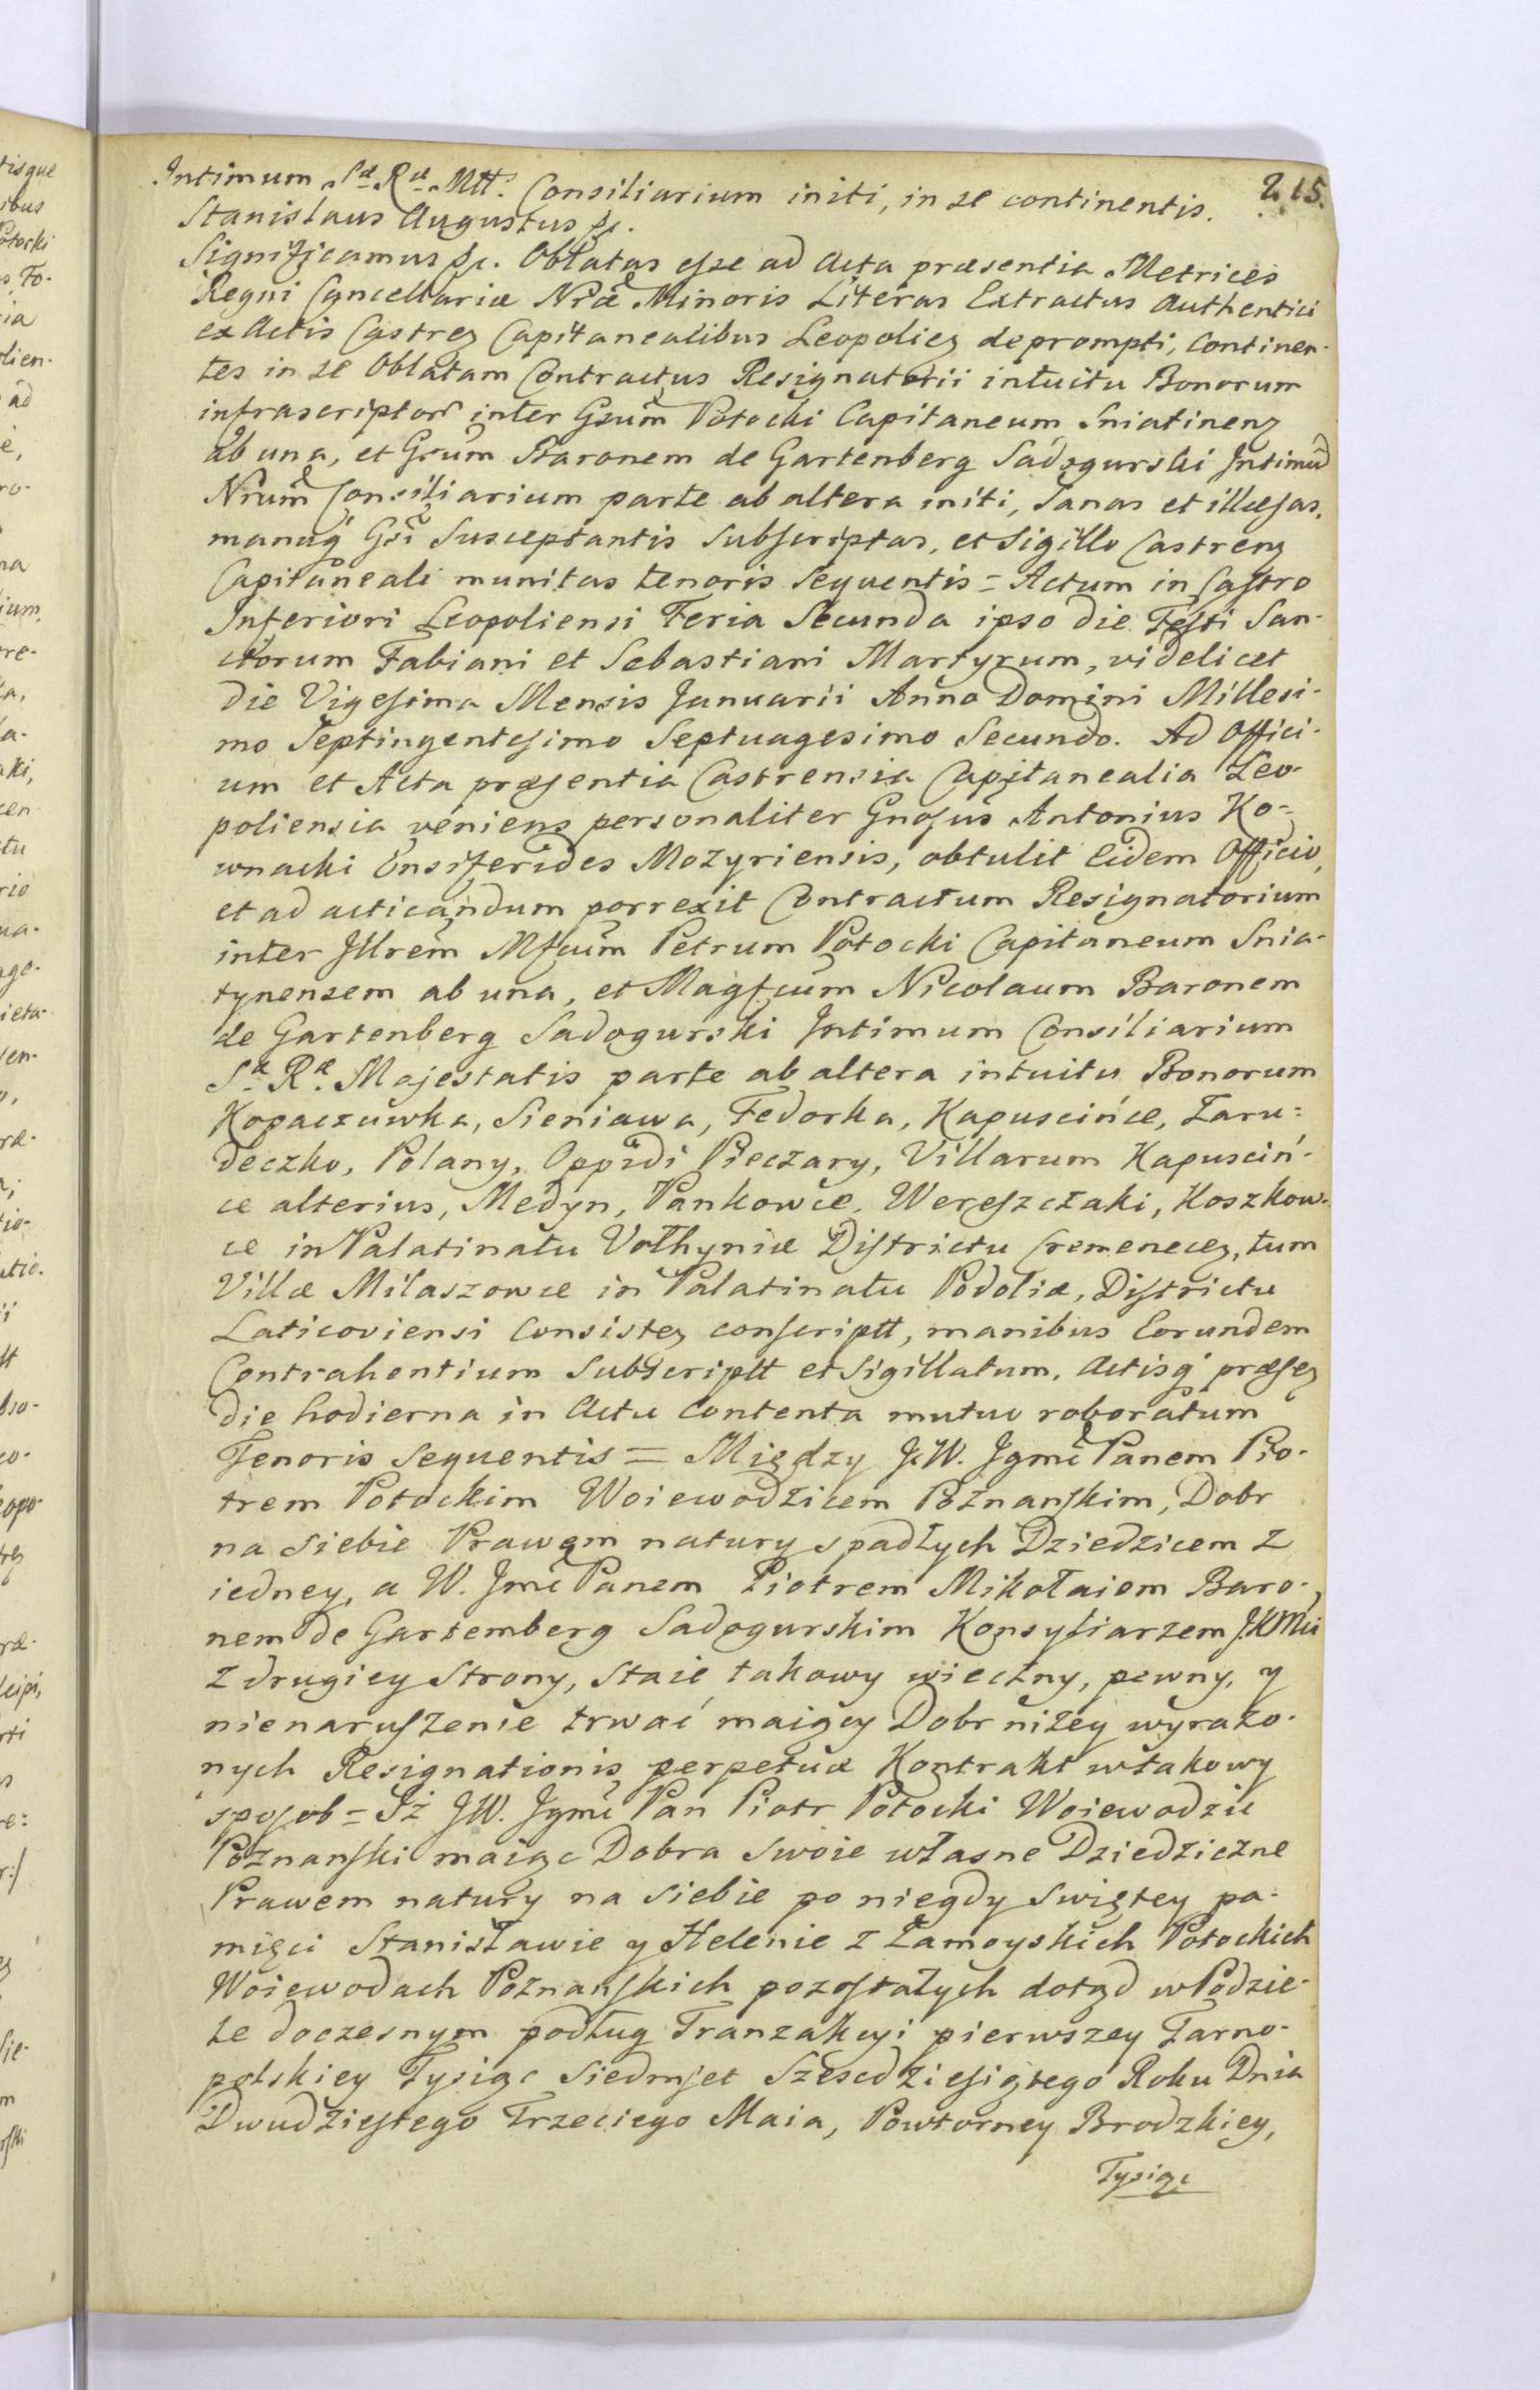 215.
Intimum Sæ Ræ Mtt. Consiliarium initi, in se continentis.
Stanislaus Augustus &c.
Significamus &c. Oblatas esse ad Acta præsentia Metrices
Regni Cancellariæ Nræ Minoris Literas Extractus Authentici
ex Actis Castrez Capitanealibus Leopoliez deprompti, Continen-
tes in se Oblatam Contractus Resignatorii intuitu Bonorum
infrascriptor inter Gsum Potocki Capitaneum Sniatinenz
ab una, et Gsum Baronem de Gartenberg Sadogurski Intimũ
Nrum Consiliarium parte ab altera initi, Sanas et illæsas,
manuq Gsi Susceptantis Subscriptas, et Sigillo Castrenz
Capitaneali munitas tenoris Sequentis = Actum in Castro
Inferiori Leopoliensi Feria Secunda ipso die Festi San-
ctorum Fabiani et Sebastiani Martyrum, videlicet
die Vigesima Mensis Januarii Anno Domini Millesi-
mo Septingentesimo Septuagesimo Secundo. Ad Offici-
um et Acta præsentia Castrensia Capitanealia Leo-
poliensia veniens personaliter Gnosus Antonius Ko-
wnacki Ensiferides Mozyriensis, obtulit Eidem Officio,
et ad acticandum porrexit Contractum Resignatorium
inter Jllrem Mfcum Petrum Potocki Capitaneum Snia-
tynensem ab una, et Magfcum Nicolaum Baronem
de Gartenberg Sadogurski Intimum Consiliarium
Sæ Ræ Majestatis parte ab altera intuitu Bonorum
Kopaczuwka, Sieniawa, Fedorka, Kapuscińce, Zaru-
deczko, Polany, Oppidi Pieczary, Villarum Kapusciń-
ce alterius, Medyn, Pankowce, Wereszczaki, Koszkow-
ce in Palatinatu Volhyniæ Districtu Cremenecez, tum
Villæ Milaszowce in Palatinatu Podoliæ, Districtu
Laticoviensi Consistez conscriptt, manibus Eorundem
Contrahentium Subscriptt et Sigillatum, Actisq præsez
die hodierna in Actu Contenta mutuo roboratum
Tenoris Sequentis = Między JW. Jgmć Panem Pio-
trem Potockim Woiewodzicem Poznanskim, Dobr
na siebie Prawem natury spadłych Dziedzicem z
iedney, a W. Jmć Panem Piotrem Mikołaiem Baro-
nem de Gartemberg Sadogurskim Konsyliarzem JKMci
z drugiey Strony, Staie takowy wieczny, pewny, y
nienaruszenie trwać maiący Dobr niżey wyrażo-
nych Resignationis perpetuæ Kontrakt w takowy
sposob = Iż JW. Jgmć Pan Piotr Potocki Woiewodzic
Poznanski maiąc Dobra Swoie własne Dziedziczne
Prawem natury na siebie po niegdy Swiętey pa-
mięci Stanisławie y Helenie z Zamoyskich Potockich
Woiewodach Poznanskich pozostałych dotąd w Podzie-
le doczesnym podług Tranzakcyi pierwszey Tarno-
polskiey Tysiąc Siedmset Szescdziesiątego Roku Dnia
Dwudziestego Trzeciego Maia, Powtorney Brodzkiey,
Tysiąc